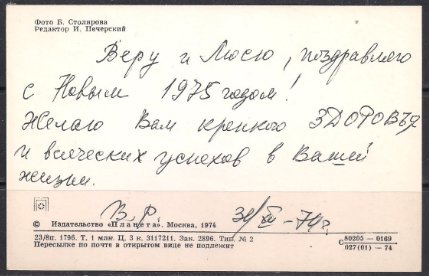 Фото Б. Столярова
Редактор И. Печерский
Веру и Люсю, поздравляю
с Новым 1975 годом!
Желаю Вам крепкого ЗДОРОВЪЯ
и всяческих успехов в Вашей
жизни.
В. Р. 30/XII-74г.
© Издательство «Планета». Москва, 1974
23/8п. 1796. Т. 1 млн. Ц. 3 к. 3117211. Зак. 2896. Тип. № 2
Пересылке по почте в открытом виде не подлежит
С 80205—0169
027(01)—74